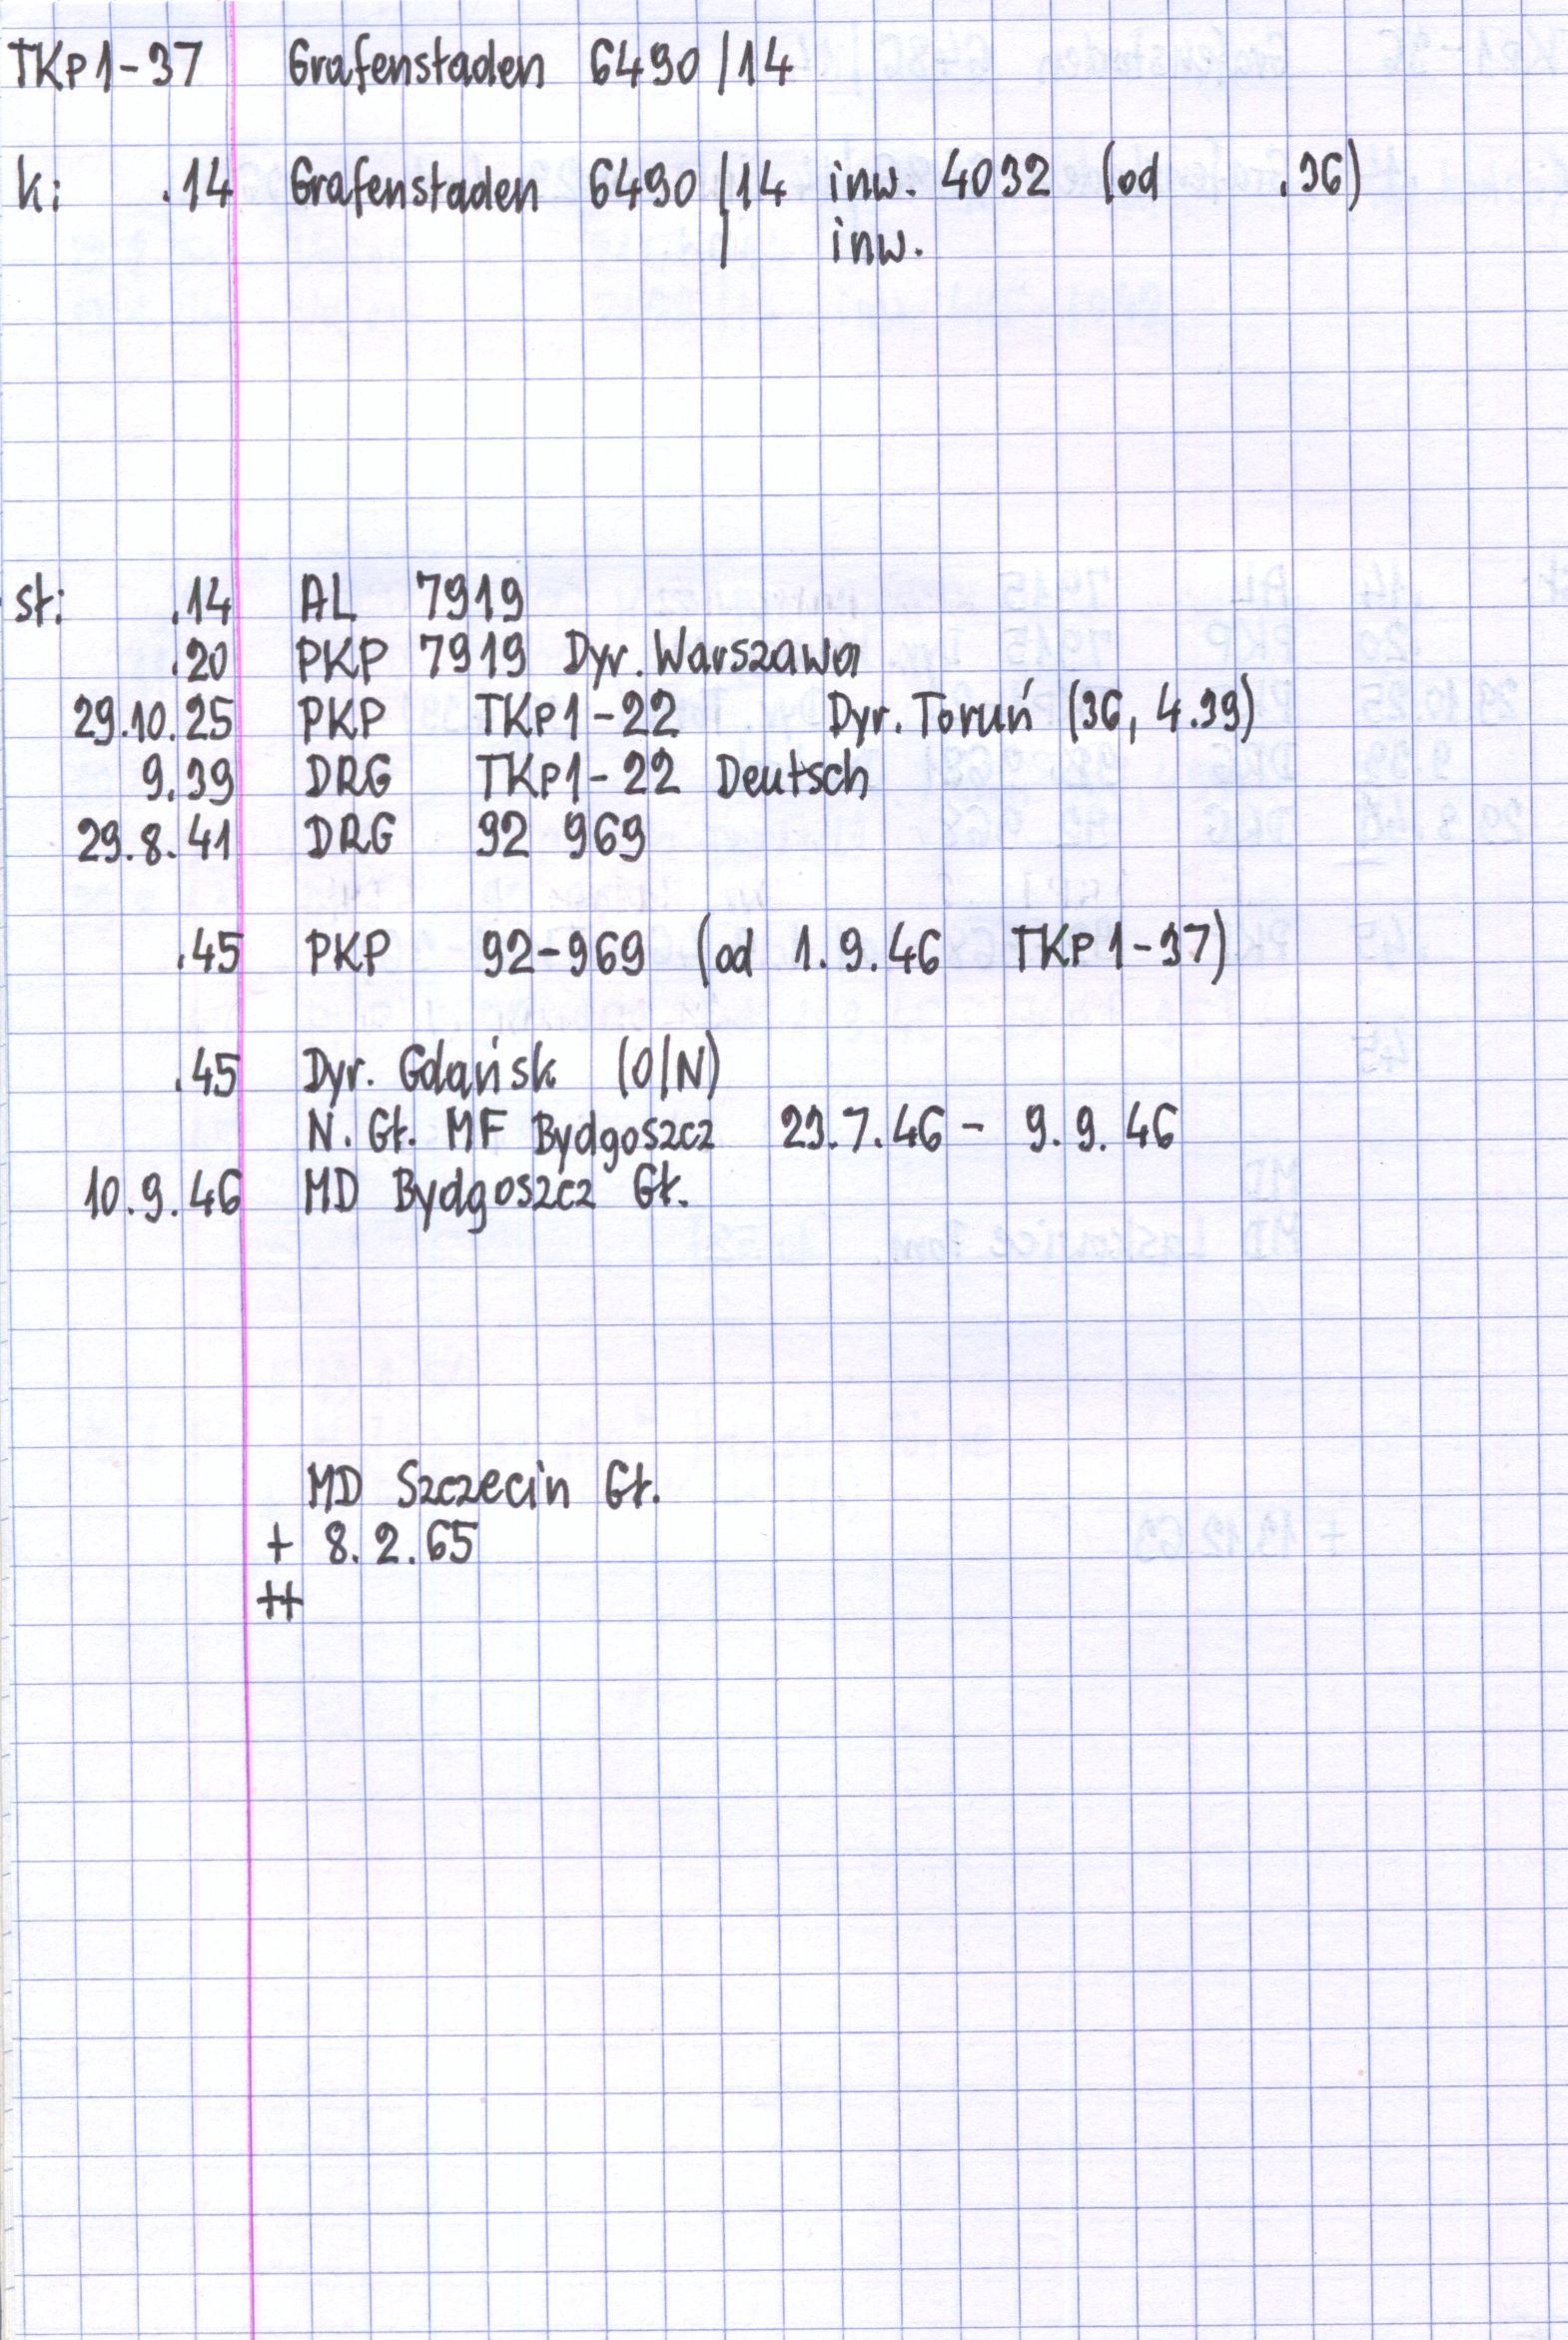 TKp1-37 Grafenstaden 6490/14
k: .14 Grafenstaden 6490/14 inw. 4032 (od .36)
/ inw.
st: .14 AL 7919
.20 PKP 7919 Dyr. Warszawa
29.10.25 PKP TKp1-22 Dyr. Toruń (36, 4.39)
9.39 DRG TKp1-22 Deutsch
29.8.41 DRG 92 969
.45 PKP 92-969 (od 1.9.46 TKp1-37)
.45 Dyr. Gdańsk (O/N)
N. Gł. MF Bydgoszcz 29.7.46 - 9.9.46
10.9.46 MD Bydgoszcz Gł.
MD Szczecin Gł.
+ 8.2.65
++